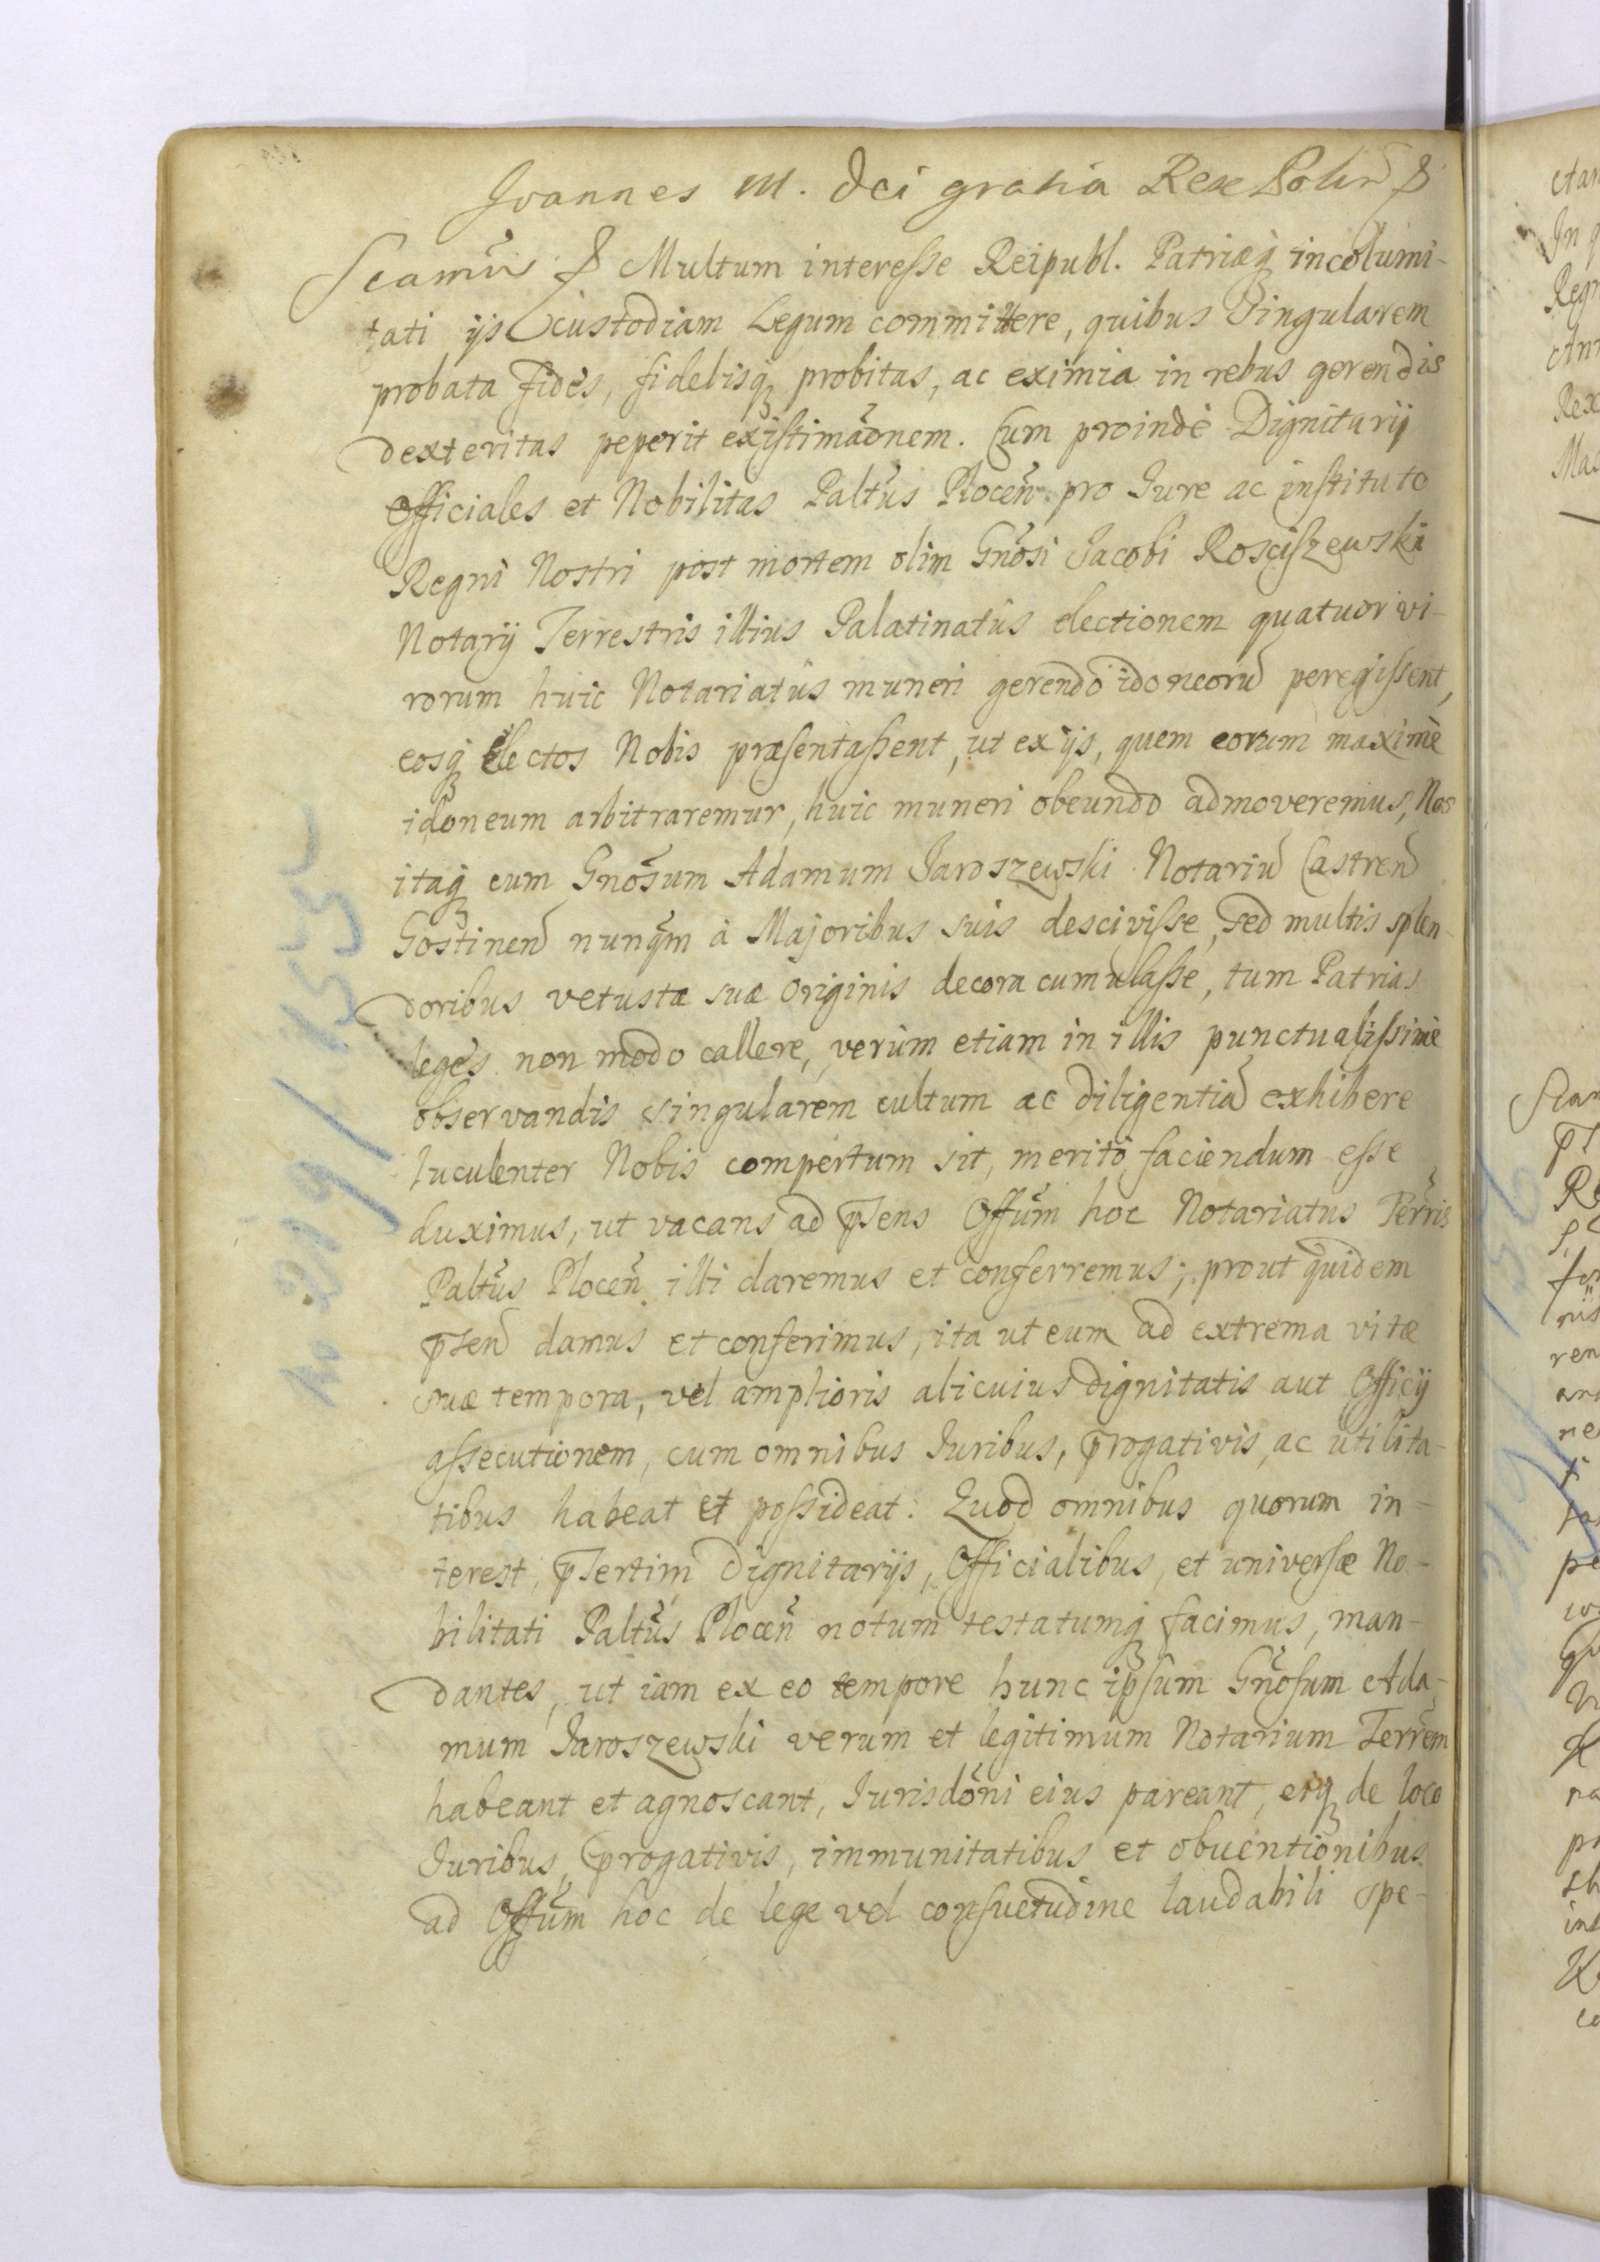 Joannes III. Dei gratia Rex Polnn &
Scamus & Multum interesse Reipubl. Patriæq; incolumi-
tati ijs custodiam Legum committere, quibus singularem
probata fides, fidelisq; probitas, ac eximia in rebus gerendis
dexteritas peperit existimaõnem. Cum proindè Dignitarij
Officiales et Nobilitas Paltũs Plocen̄ pro Jure ac instituto
Regni Nostri post mortem olim Gnõsi Jacobi Rosciszewski
Notarij Terrestris illius Palatinatûs electionem quatuor vi-
rorum huic Notariatûs muneri gerendo idoneorũ peregissent,
eosq; electos Nobis præsentassent, ut ex ijs, quem eorum maximè
idoneum arbitraremur, huic muneri obeundo admoveremus, Nos
itaq; cum Gnõsum Adamum Jaroszewski Notariũ Castren̄
Gostinen̄ nunq̃m à Majoribus suis descivisse, sed multis splen-
doribus vetustæ suæ originis decora cumulasse, tum Patrias
leges non modo callere, verùm etiam in illis punctualissimè
observandis singularem cultum ac diligentiã exhibere
luculenter Nobis compertum sit, meritò faciendum esse
duximus, ut vacans ad p̃sens Offũm hoc Notariatus Terr̃ris
Paltũs Plocen̄ illi daremus et conferremus; prout quidem
p̃sen̄ damus et conferimus, ita ut eum ad extrema vitæ
suæ tempora, vel amplioris alicuius dignitatis aut Officij
assecutionem, cum omnibus Juribus, p̃rogativis, ac utilita-
tibus habeat et possideat. Quod omnibus quorum in-
terest, p̃sertim Dignitarijs, Officialibus, et universæ No-
bilitati Paltũs Plocen̄ notum testatumq; facimus, man-
dantes, ut iam ex eo tempore hunc ipsum Gnõsum Ada-
mum Jaroszewski verum et legitimum Notarium Terr̃em
habeant et agnoscant, Jurisdõni eius pareant, eiq; de loco
Juribus, p̃rogativis, immunitatibus et obventionibus
ad Offũm hoc de lege vel consuetudine laudabili spe-
No 219/155